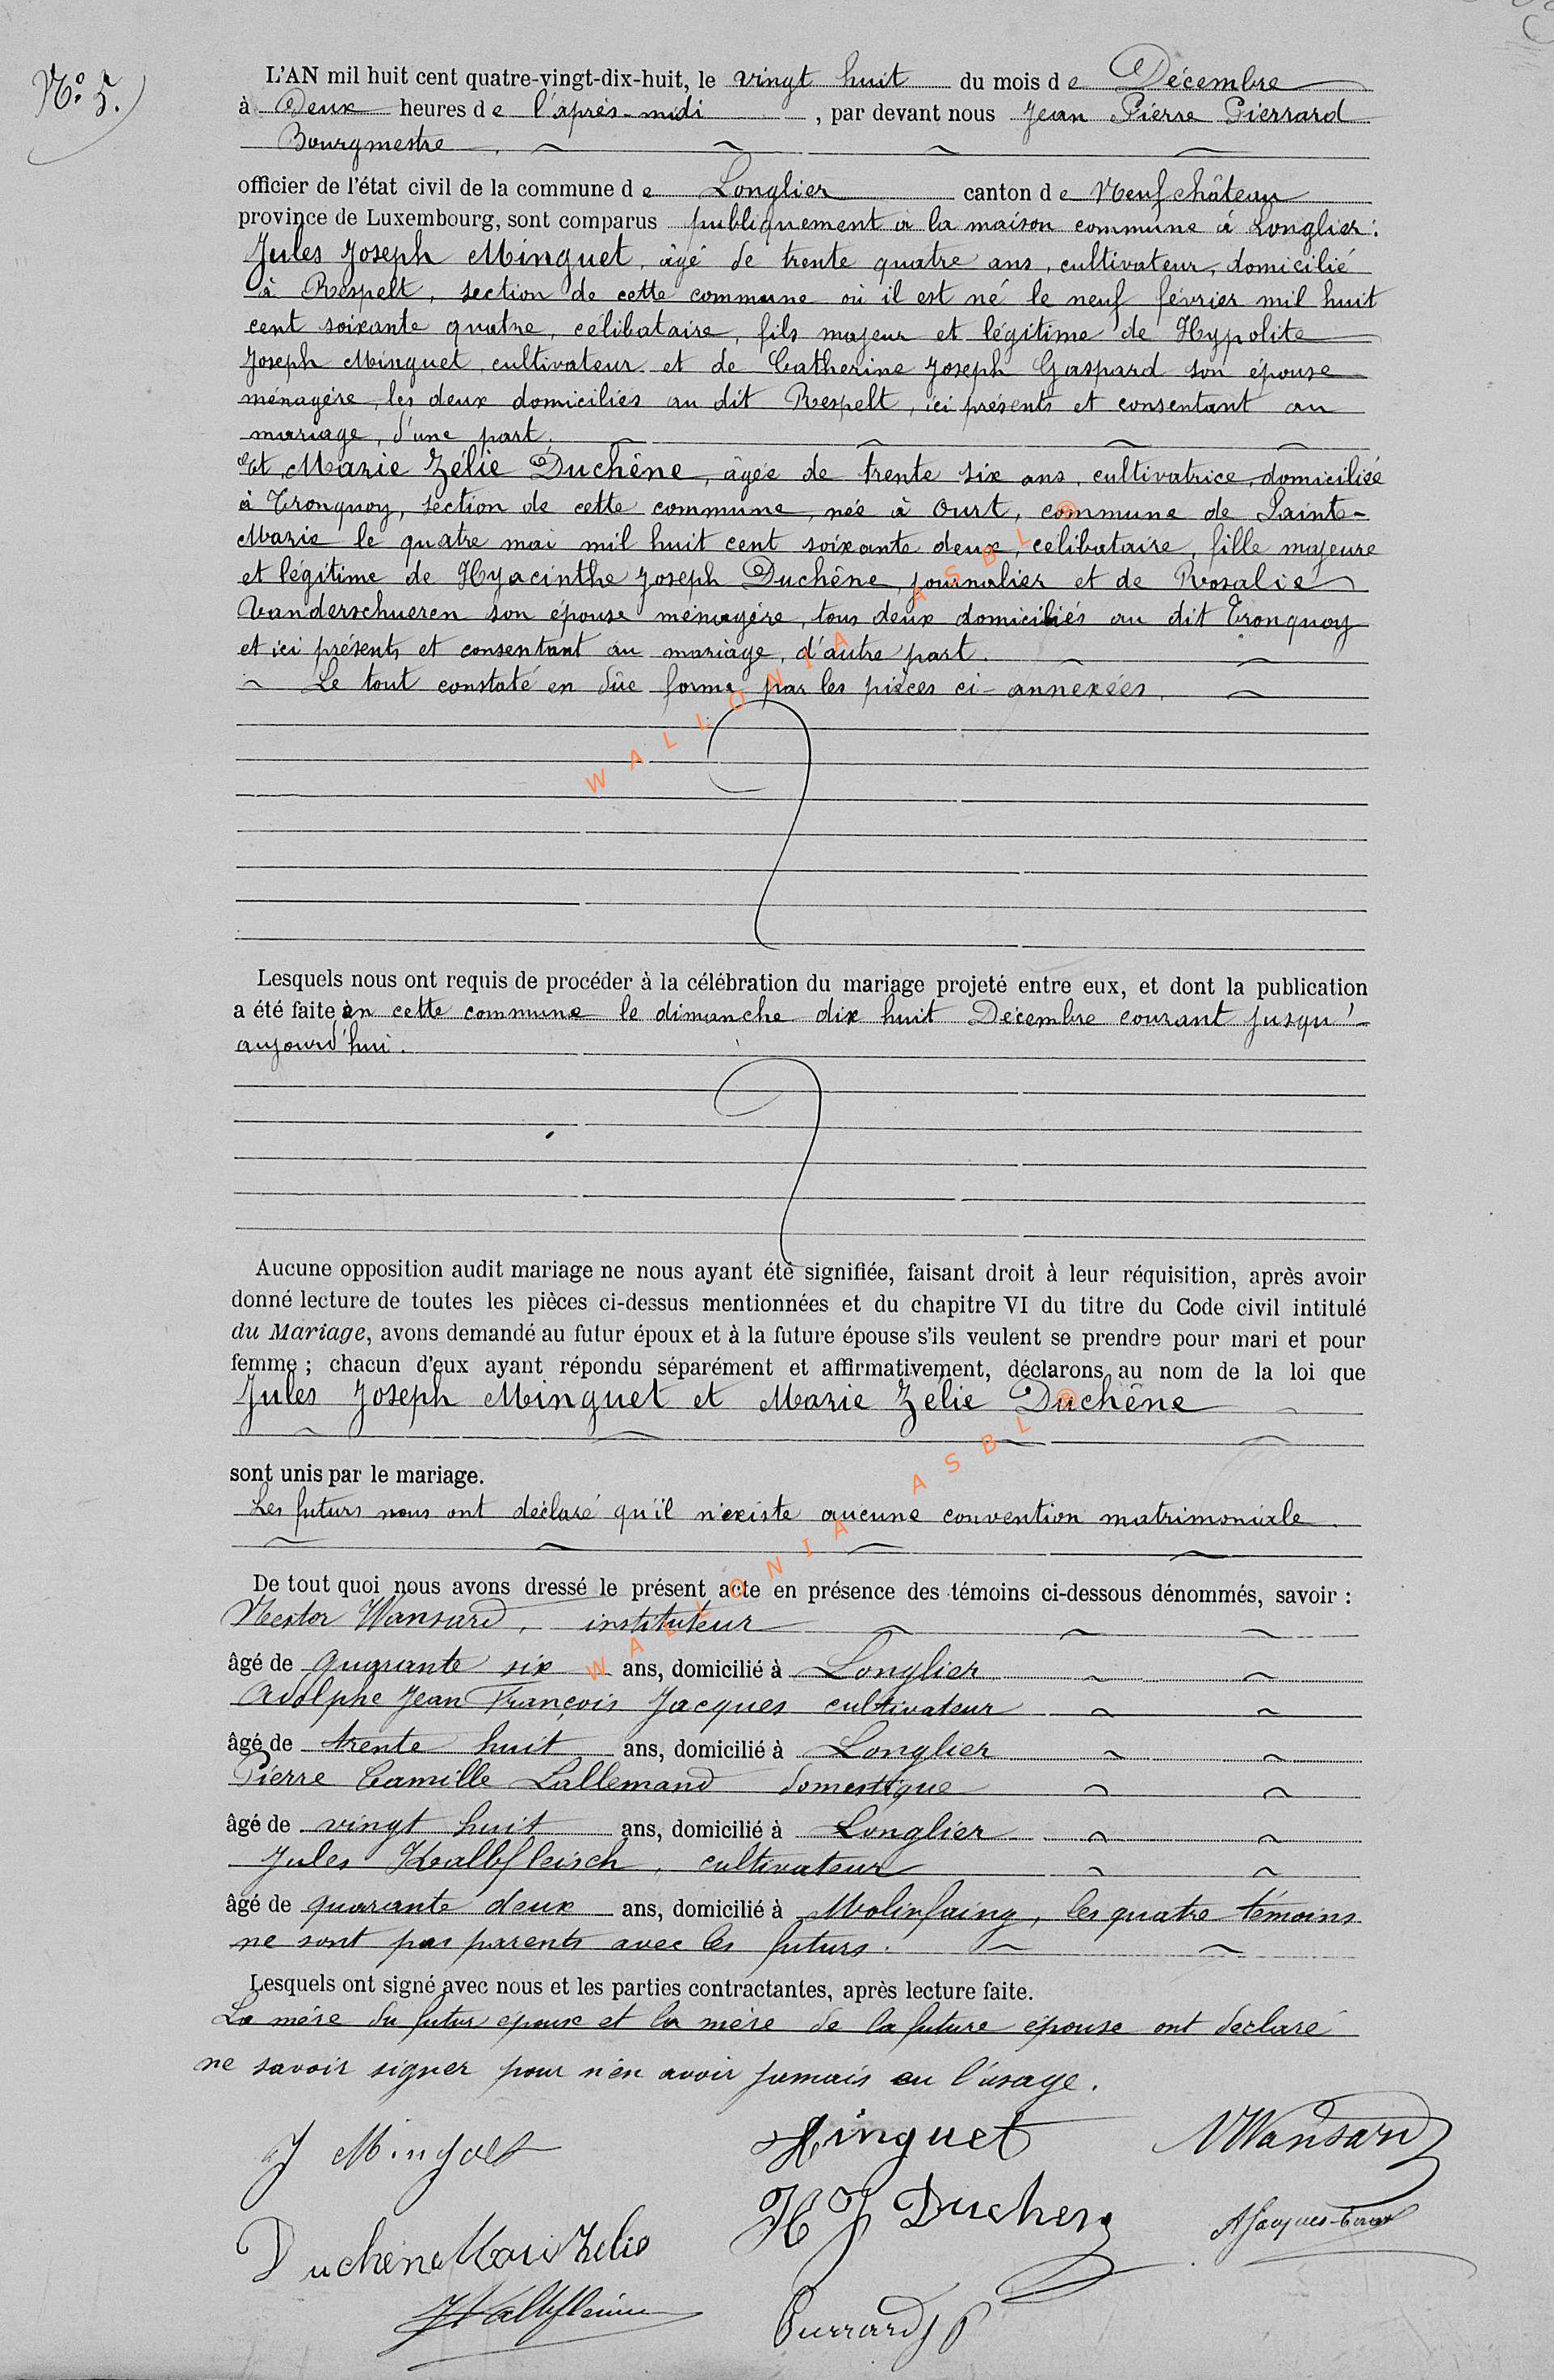 N° 5.)
L'AN mil huit cent quatre-vingt-dix-huit, le vingt huit du mois de Décembre
à Deux heures de l'après-midi, par devant nous Jean Pierre Pierrard
Bourgmestre
officier de l'état civil de la commune de Longlier canton de Neufchâteau
province de Luxembourg, sont comparus publiquement à la maison commune à Longlier:
Jules Joseph Minguet, âgé de trente quatre ans, cultivateur, domicilié
à Respelt, section de cette commune où il est né le neuf février mil huit
cent soixante quatre, célibataire, fils majeur et légitime de Hypolite
Joseph Minguet, cultivateur et de Catherine Joseph Gaspard son épouse
ménagère, les deux domiciliés au dit Respelt, ici présents et consentant au
mariage, d'une part.
Et Marie Zélie Duchêne, âgée de trente six ans, cultivatrice, domiciliée
à Tronquoy, section de cette commune, née à Ourt, commune de Sainte-
Marie le quatre mai mil huit cent soixante deux, célibataire, fille majeure
et légitime de Hyacinthe Joseph Duchêne, journalier et de Rosalie
Vanderschueren son épouse ménagère, tous deux domiciliés au dit Tronquoy
et ici présents et consentant au mariage, d'autre part.
Le tout constaté en dûe forme par les pièces ci-annexées.
WALLONIA ASBL ®
Lesquels nous ont requis de procéder à la célébration du mariage projeté entre eux, et dont la publication
a été faite en cette commune le dimanche dix huit Décembre courant jusqu'-
aujourd'hui.
Aucune opposition audit mariage ne nous ayant été signifiée, faisant droit à leur réquisition, après avoir
donné lecture de toutes les pièces ci-dessus mentionnées et du chapitre VI du titre du Code civil intitulé
du Mariage, avons demandé au futur époux et à la future épouse s'ils veulent se prendre pour mari et pour
femme ; chacun d'eux ayant répondu séparément et affirmativement, déclarons au nom de la loi que
Jules Joseph Minguet et Marie Zélie Duchêne
sont unis par le mariage.
Les futurs nous ont déclaré qu'il n'existe aucune convention matrimoniale.
WALLONIA ASBL ®
De tout quoi nous avons dressé le présent acte en présence des témoins ci-dessous dénommés, savoir :
Nestor Wansard, instituteur
âgé de quarante six ans, domicilié à Longlier
Adolphe Jean François Jacques cultivateur
âgé de trente huit ans, domicilié à Longlier
Pierre Camille Lallemand domestique
âgé de vingt huit ans, domicilié à Longlier
Jules Kalbfleisch, cultivateur
âgé de quarante deux ans, domicilié à Molinfaing, les quatre témoins
ne sont pas parents avec les futurs.
Lesquels ont signé avec nous et les parties contractantes, après lecture faite.
La mère du futur époux et la mère de la future épouse ont déclaré
ne savoir signer pour n'en avoir jamais eu l'usage.
J Minguet Minguet NWansard
Duchene Marie Zelie H J Duchene AJacques
JKalbfleisch Pierrard J P